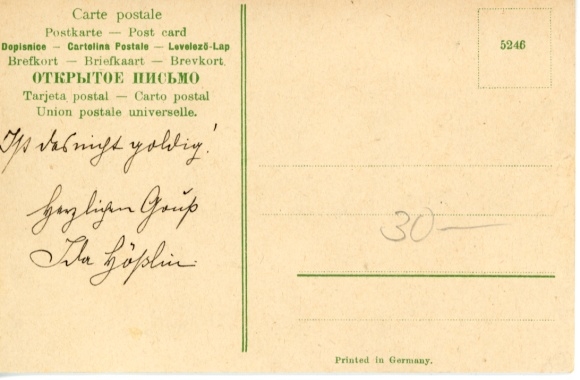 Carte postale
Postkarte — Post card
Dopisnice — Cartolina Postale — Levelező-Lap
Brefkort — Briefkaart — Brevkort
ОТКРЫТОЕ ПИСЬМО
Tarjeta postal — Carto postal
Union postale universelle.
Ist das nicht goldig!
Herzlichen Gruß
Ida Hößlin
5246
30—
Printed in Germany.